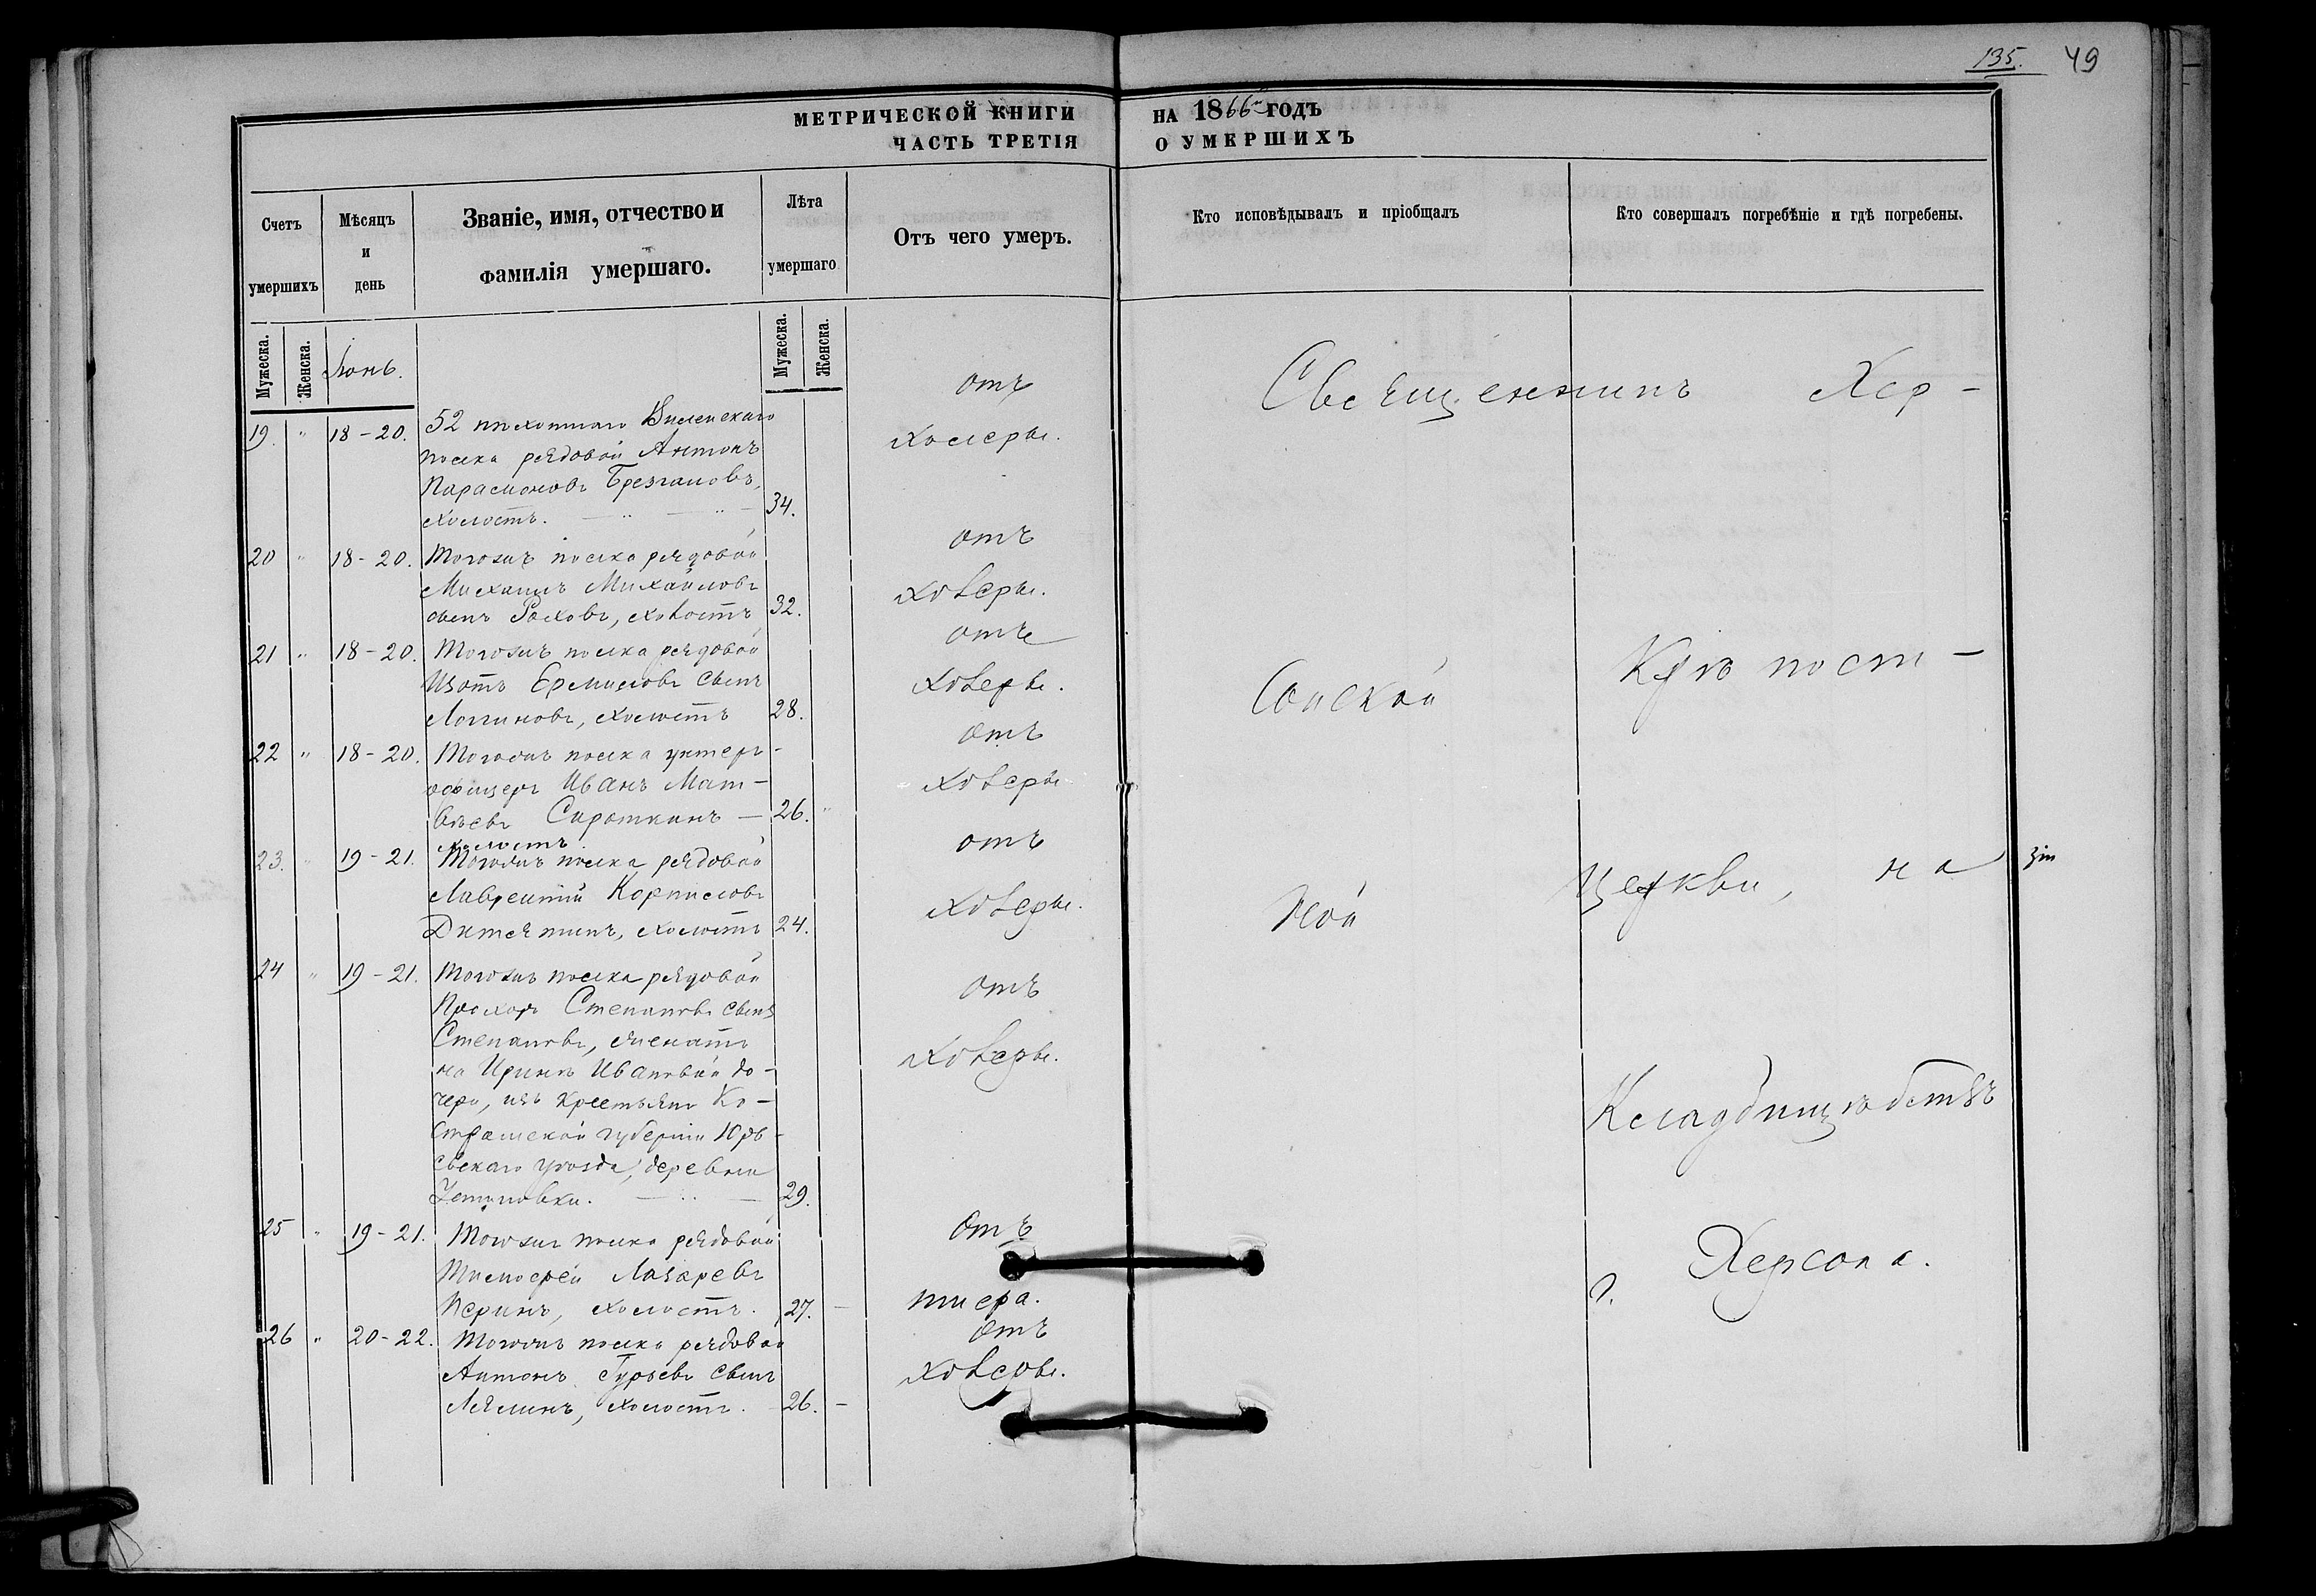 135. 49
МЕТРИЧЕСКОЙ КНИГИ НА 1866 ГОДЪ
ЧАСТЬ ТРЕТІЯ О УМЕРШИХЪ
Счетъ умершихъ
Мѣсяцъ и день
Званіе, имя, отчество и фамилія умершаго.
Лѣта умершаго
Отъ чего умеръ.
Кто исповѣдывалъ и пріобщалъ
Кто совершалъ погребѣніе и гдѣ погребены.
Мужеска. Женска. Мужеска. Женска.
Іюнь.
19. " 18-20. 52 пѣхотнаго Виленскаго
полка рядовой Антонъ
Парамоновъ
холостъ. 34.
отъ
холеры.
20 " 18-20. Тогожъ полка рядовой
Михаилъ Михайловъ
сынъ холостъ 32.
отъ
холеры.
21 " 18-20. Тогожъ полка рядовой
Изотъ Ермиловъ сынъ
Логиновъ, холостъ 28.
отъ
холеры.
22 " 18-20. Тогожъ полка унтеръ-
офицеръ Иванъ Мат-
вѣевъ Сироткинъ — 26.
холостъ.
отъ
холеры
23. " 19-21. Тогожъ полка рядовой
Лаврентій Корниловъ
холостъ 24.
отъ
холеры.
24 " 19-21. Тогожъ полка рядовой
Прохоръ Степановъ сынъ
Степановъ, женатъ
на Иринѣ Ивановой до-
чери, изъ крестьянъ Ко-
стромской губерніи Юрь-
евскаго уѣзда, деревни
29.
отъ
холеры.
25 " 19-21. Тогожъ полка рядовой
Тимофей Лазаревъ
Перинъ, холостъ. 27. —
отъ
тифа.
26 " 20-22. Тогожъ полка рядовой
Антонъ Гурьевъ сынъ
Лялинъ, холостъ. 26. —
отъ
холеры.
Священникъ Хер-
сонской Крѣпост-
ной Церкви, на
Кладбищѣ
г. Херсона.